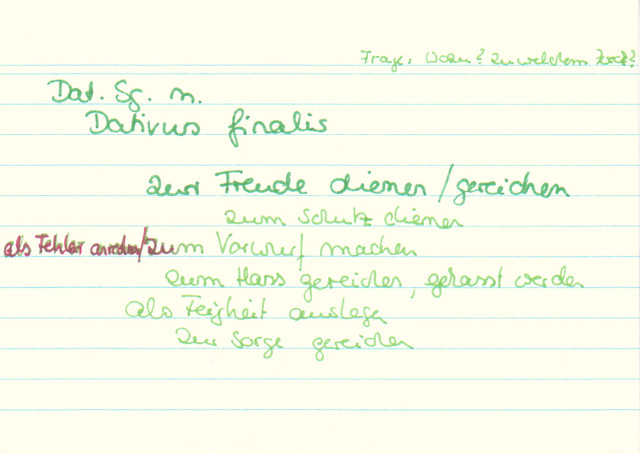 Frage: Wozu? Zu welchem Zweck?
Dat. Sg. n.
Dativus finalis
zur Freude dienen / gereichen
zum Schutz dienen
als Fehler anrechnen/zum Vorwurf machen
zum Hass gereichen, gehasst werden
als Feigheit auslegen
zur Sorge gereichen